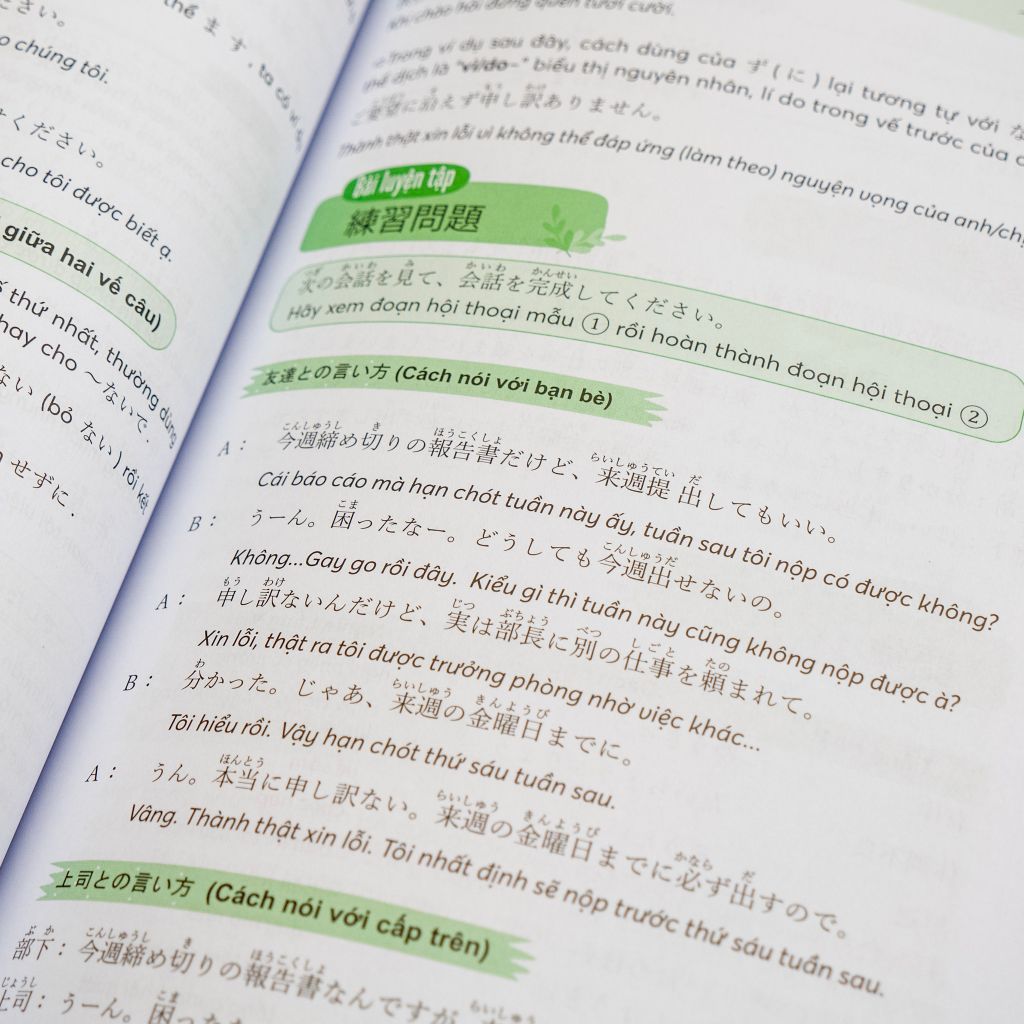 ださい。
chúng tôi.
thể ます, ta có
ください。
cho tôi được biết ạ.
giữa hai vế câu)
thứ nhất, thường dùng
hay cho ～ないで.
ない (bỏ ない) rồi kết
せずに.
Trong ví dụ sau đây, cách dùng của ず(に) lại tương tự với
thể dịch là “vì/do-” biểu thị nguyên nhân, lí do trong vế trước của
ず申し訳ありません。
Thành thật xin lỗi vì không thể đáp ứng (làm theo) nguyện vọng của anh/chị
Bài luyện tập
練習問題
次の会話を見て、会話を完成してください。
Hãy xem đoạn hội thoại mẫu ① rồi hoàn thành đoạn hội thoại ②
友達との言い方 (Cách nói với bạn bè)
A： 今週締め切りの報告書だけど、来週提出してもいい。
Cái báo cáo mà hạn chót tuần này ấy, tuần sau tôi nộp có được không?
B： うーん。困ったなー。どうしても今週出せないの。
Không...Gay go rồi đây. Kiểu gì thì tuần này cũng không nộp được à?
A： 申し訳ないんだけど、実は部長に別の仕事を頼まれて。
Xin lỗi, thật ra tôi được trưởng phòng nhờ việc khác...
B： 分かった。じゃあ、来週の金曜日までに。
Tôi hiểu rồi. Vậy hạn chót thứ sáu tuần sau.
A： うん。本当に申し訳ない。来週の金曜日までに必ず出すので。
Vâng. Thành thật xin lỗi. Tôi nhất định sẽ nộp trước thứ sáu tuần sau.
上司との言い方 (Cách nói với cấp trên)
部下： 今週締め切りの報告書なんですが
上司： うーん。困った